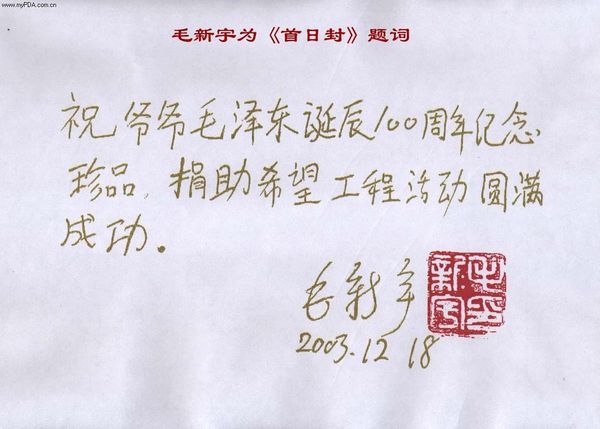 www.myPDA.com.cn
毛新宇为《首日封》题词
祝爷爷毛泽东诞辰100周年纪念
珍品，捐助希望工程活动圆满
成功。
毛新宇
2003.12 18
毛新宇印